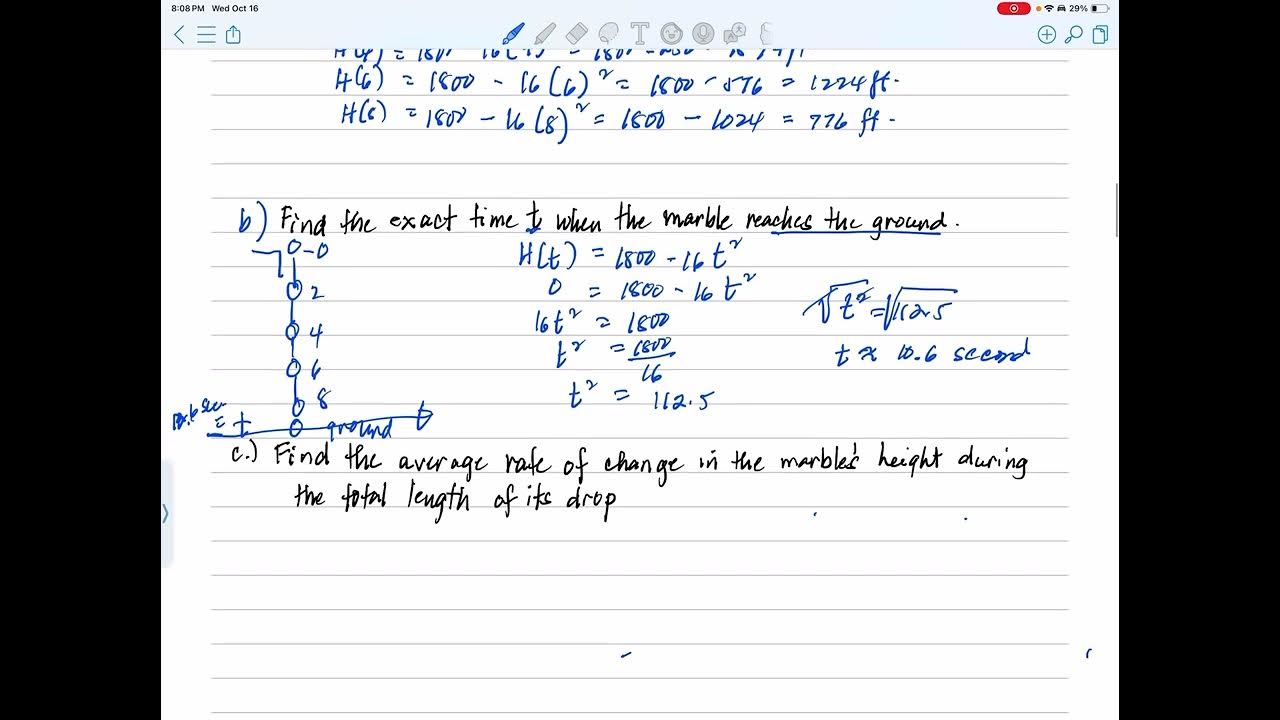 8:08 PM Wed Oct 16
29%
H(6) = 1800 - 16(6)² = 1800 - 576 = 1224 ft.
H(8) = 1800 - 16(8)² = 1800 - 1024 = 776 ft.
b) Find the exact time t when the marble reaches the ground.
0
2
4
6
8
= t
ground
t
H(t) = 1800 - 16t²
0 = 1800 - 16t²
16t² = 1800
t² = 1800/16
t² = 112.5
√t² = √112.5
t ≈ 10.6 second
c.) Find the average rate of change in the marble's height during
the total length of its drop